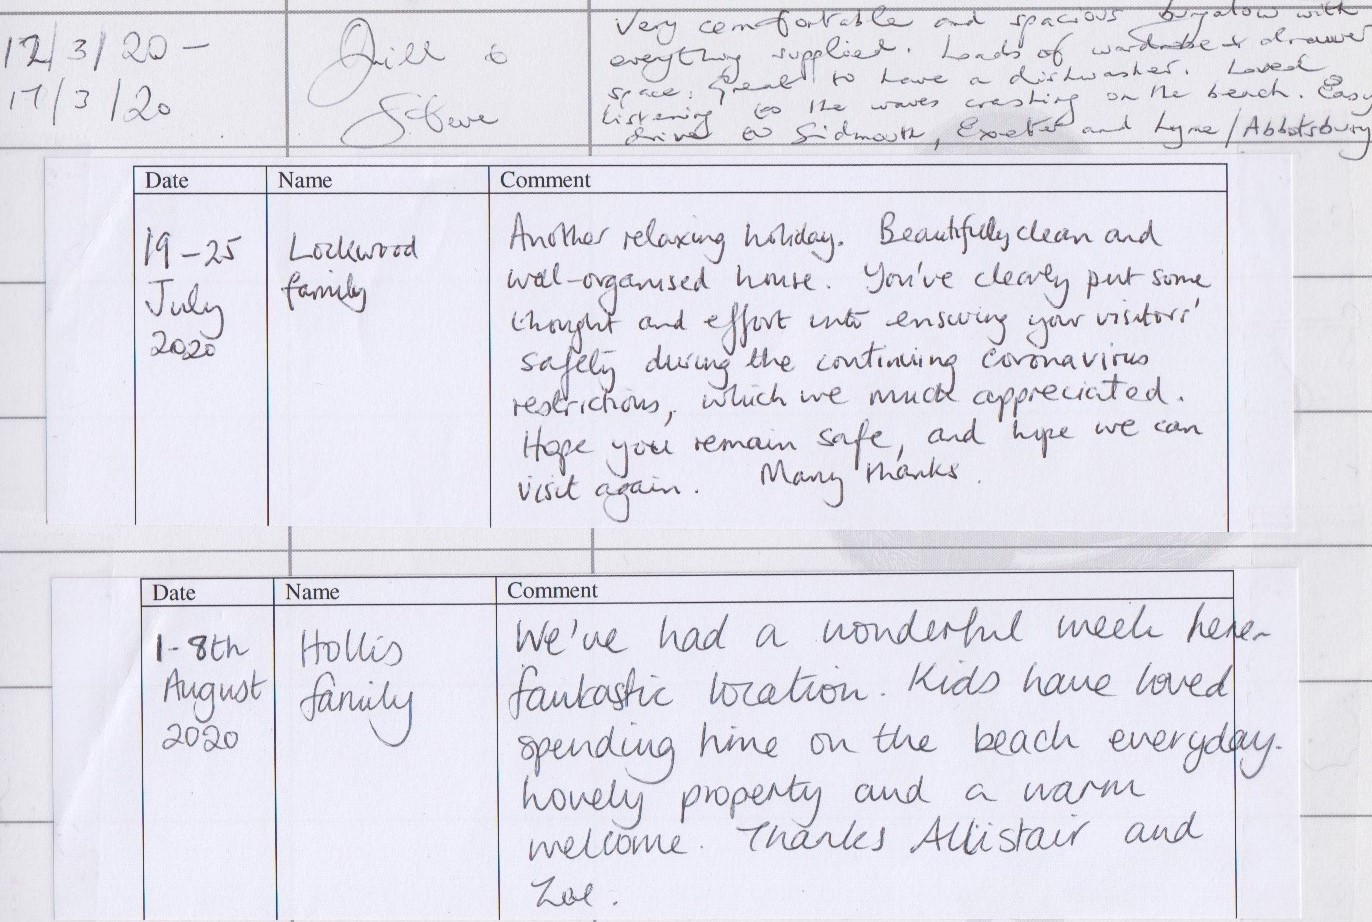 12/3/20 -
17/3/20
Jill &
Steve
Very comfortable and spacious bungalow with
everything supplied. Loads of wardrobe & drawer
space. Great to have a dishwasher. Loved
listening to the waves crashing on the beach. Easy
drive to Sidmouth, Exeter and Lyme/Abbotsbury
Date Name Comment
19-25
July
2020
Lockwood
family
Another relaxing holiday. Beautifully clean and
well-organised house. You've clearly put some
thought and effort into ensuring your visitors'
safety during the continuing coronavirus
restrictions, which we much appreciated.
Hope you remain safe, and hope we can
visit again. Many thanks.
Date Name Comment
1-8th
August
2020
Hollis
family
We've had a wonderful week here-
fantastic location. Kids have loved
spending time on the beach everyday.
Lovely property and a warm
welcome. Thanks Allistair and
Zoe.